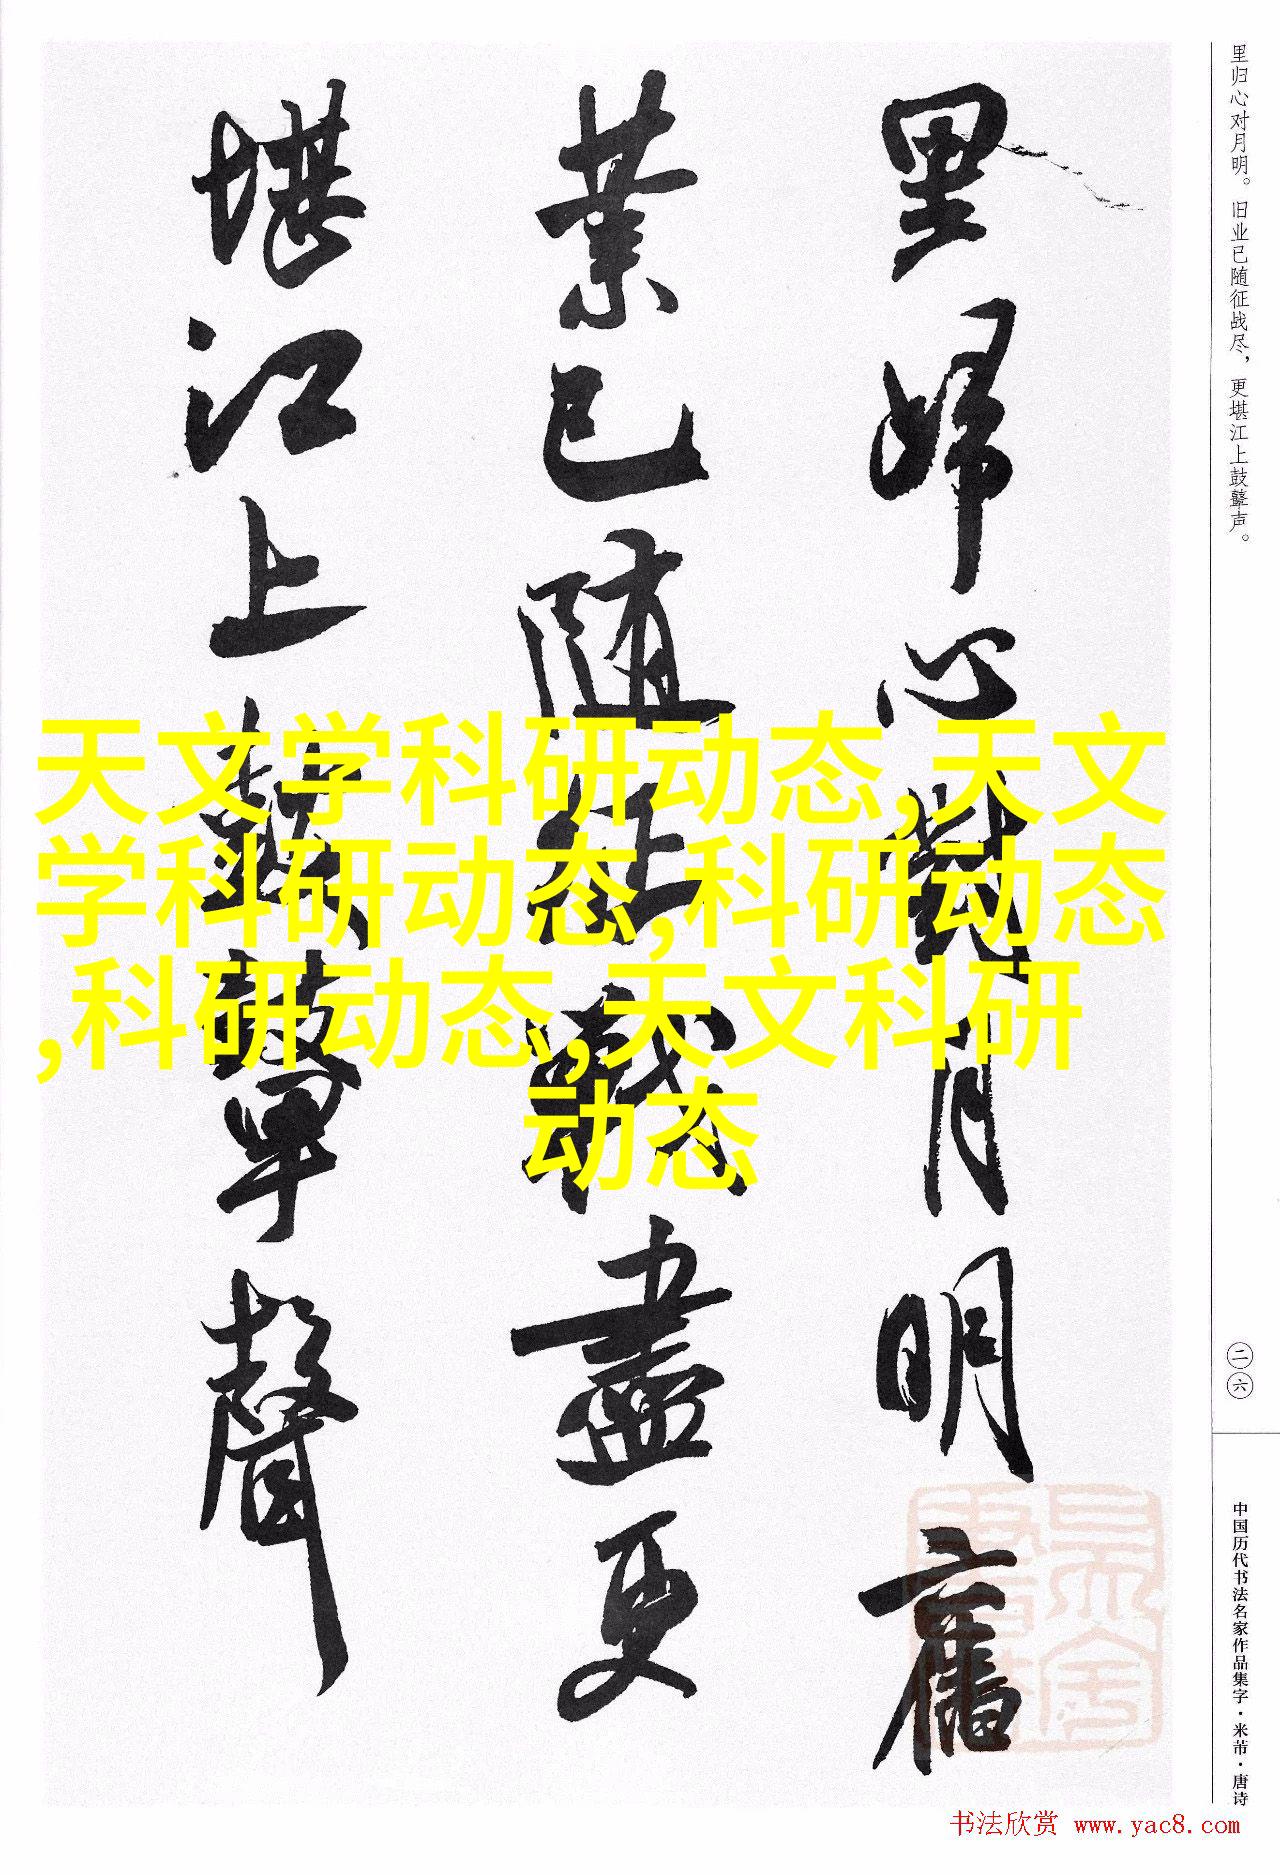 里归心对月明。旧业已随征战尽，更堪江上鼓鼙声。
二六
中国历代书法名家作品集字·米芾·唐诗
里歸心對月明舊
業已隨征戰盡更
堪江上鼓鼙聲
天文学科研动态,天文
学科研动态,科研动态
,科研动态,天文科研
动态
书法欣赏 www.yac8.com